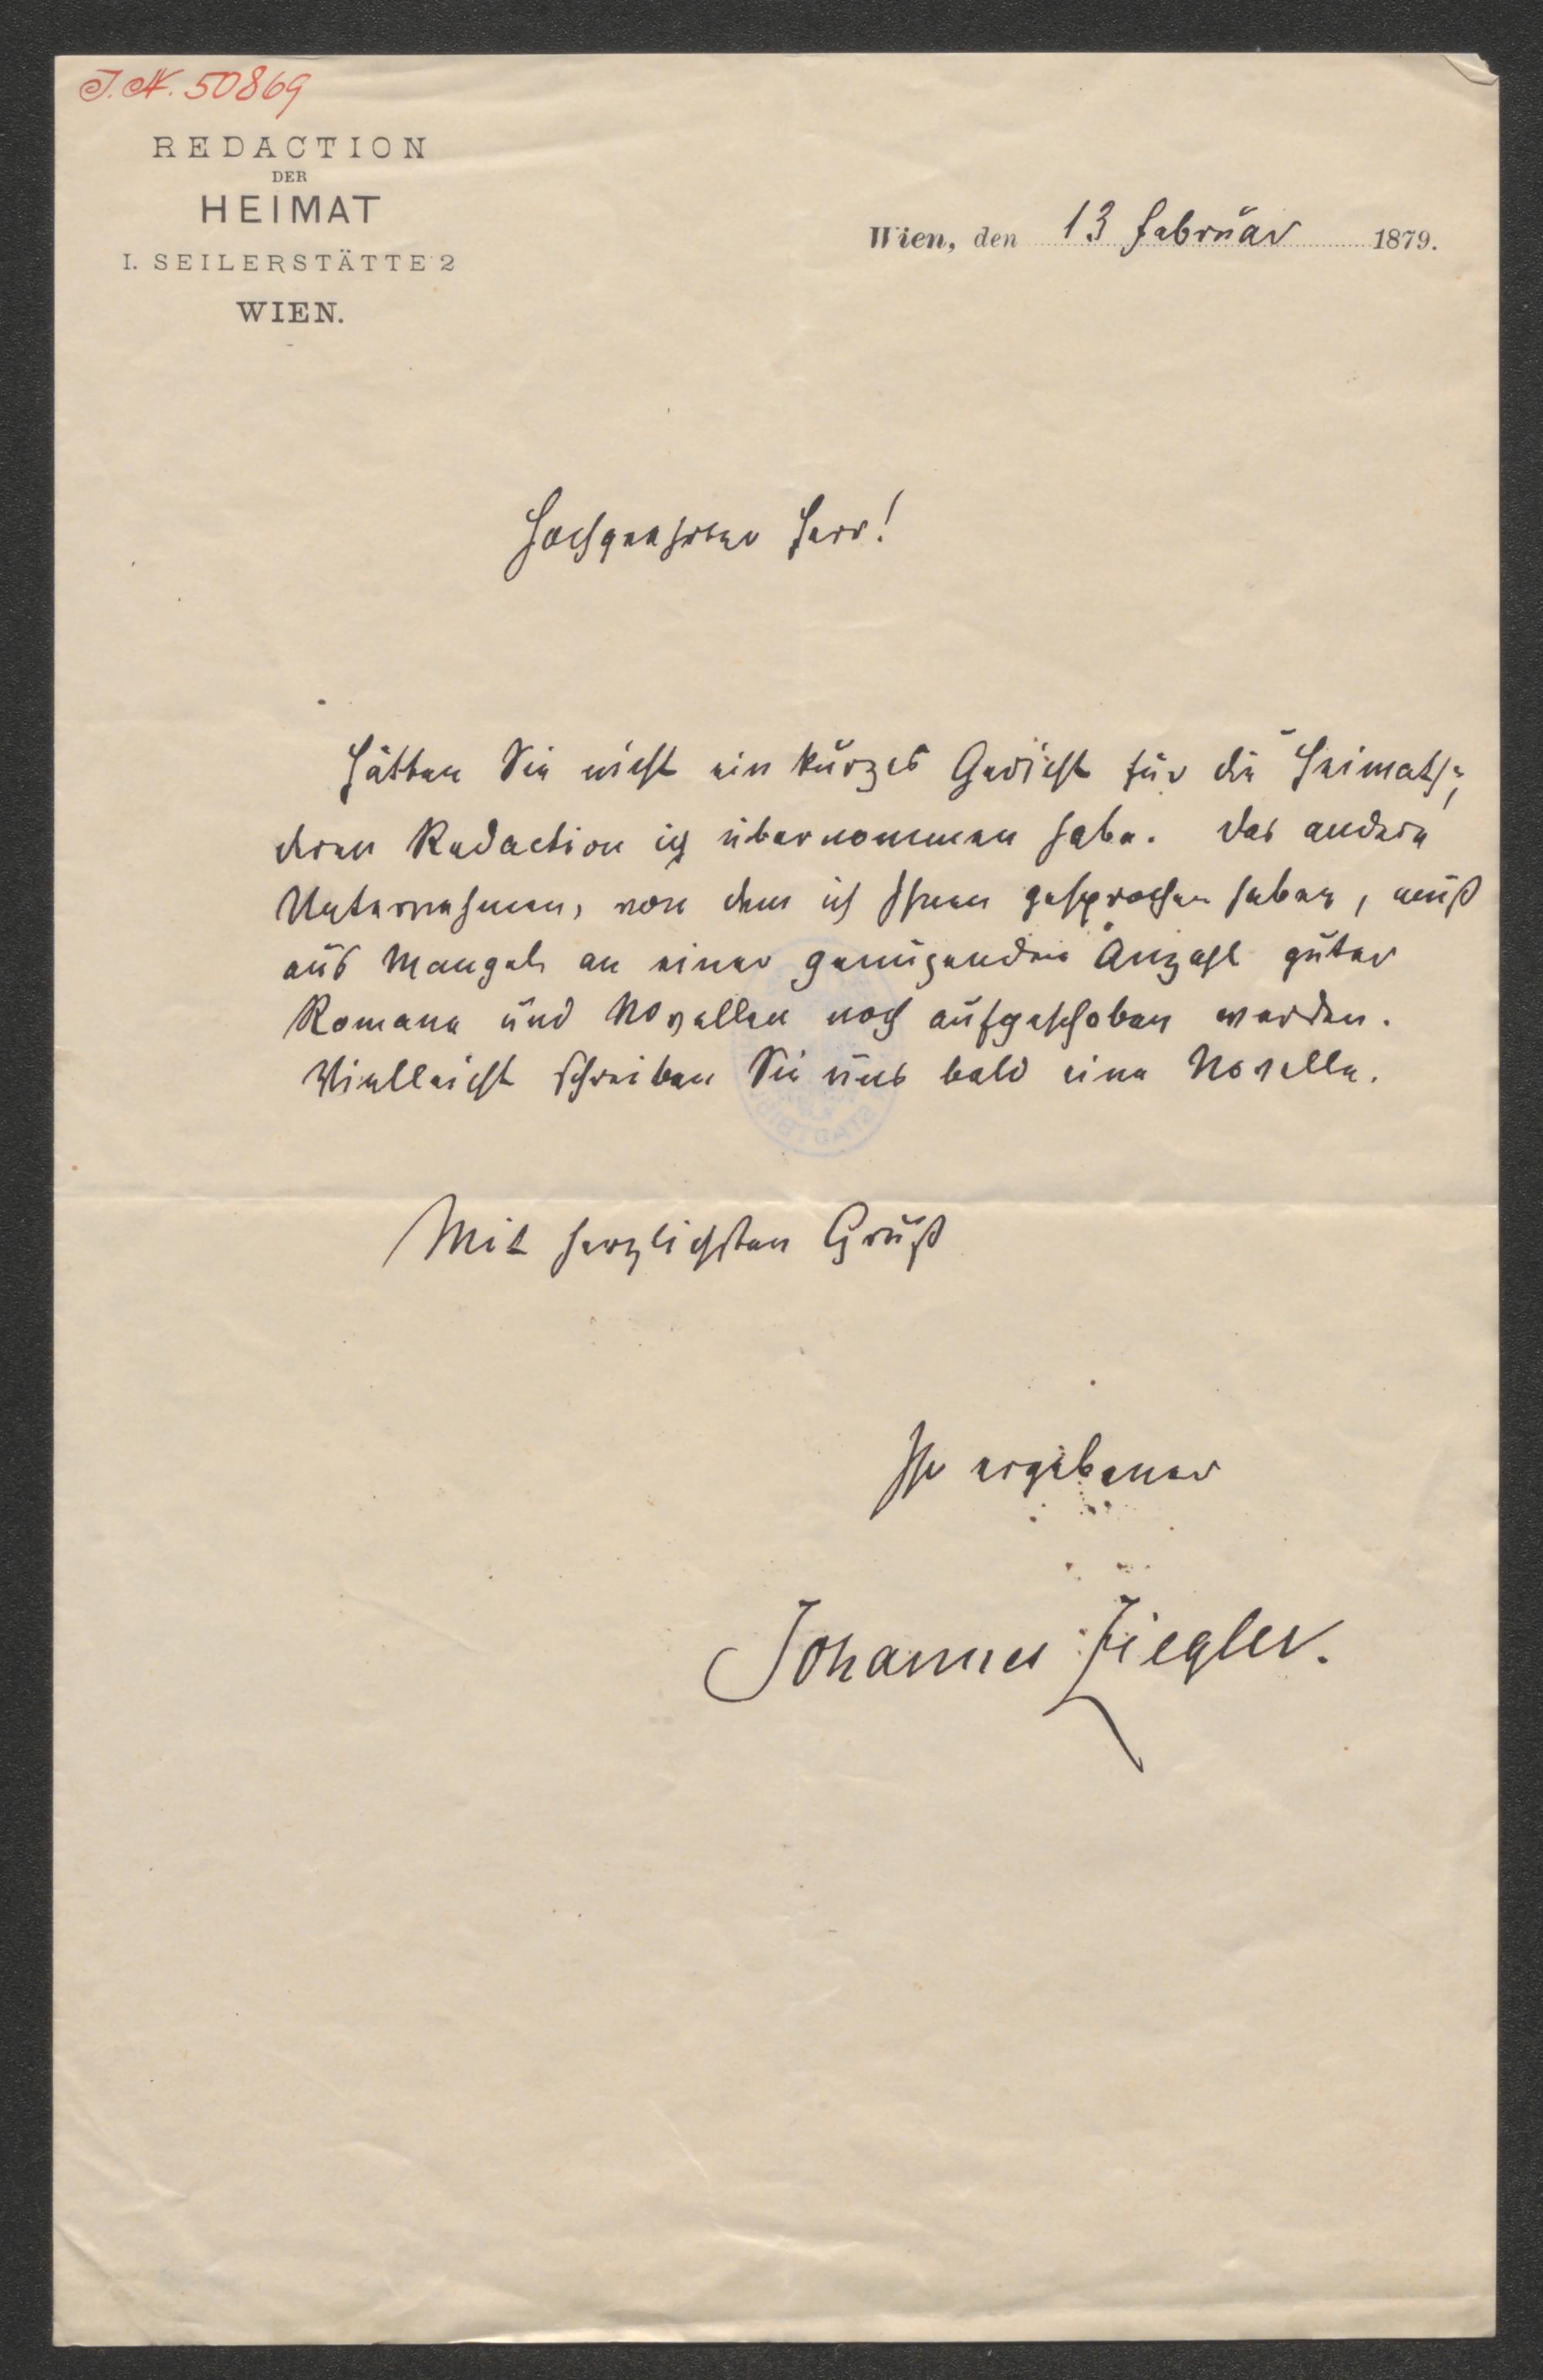 J.N. 50869
REDACTION
DER
HEIMAT
I. SEILERSTÄTTE 2
WIEN.
Wien, den 13 Februar 1879.
Hochgeehrter Herr!
Hätten Sie nicht ein kurzes Gedicht für die "Heimat",
deren Redaction ich übernommen habe. Das andere
Unternehmen, von dem ich Ihnen gesprochen haben, muß
aus Mangel an einer genügenden Anzahl guter
Romane und Novellen noch aufgeschoben werden.
Vielleicht schreiben Sie uns bald eine Novelle.
Mit herzlichsten Gruß
Ihr ergebener
Johannes Ziegler.